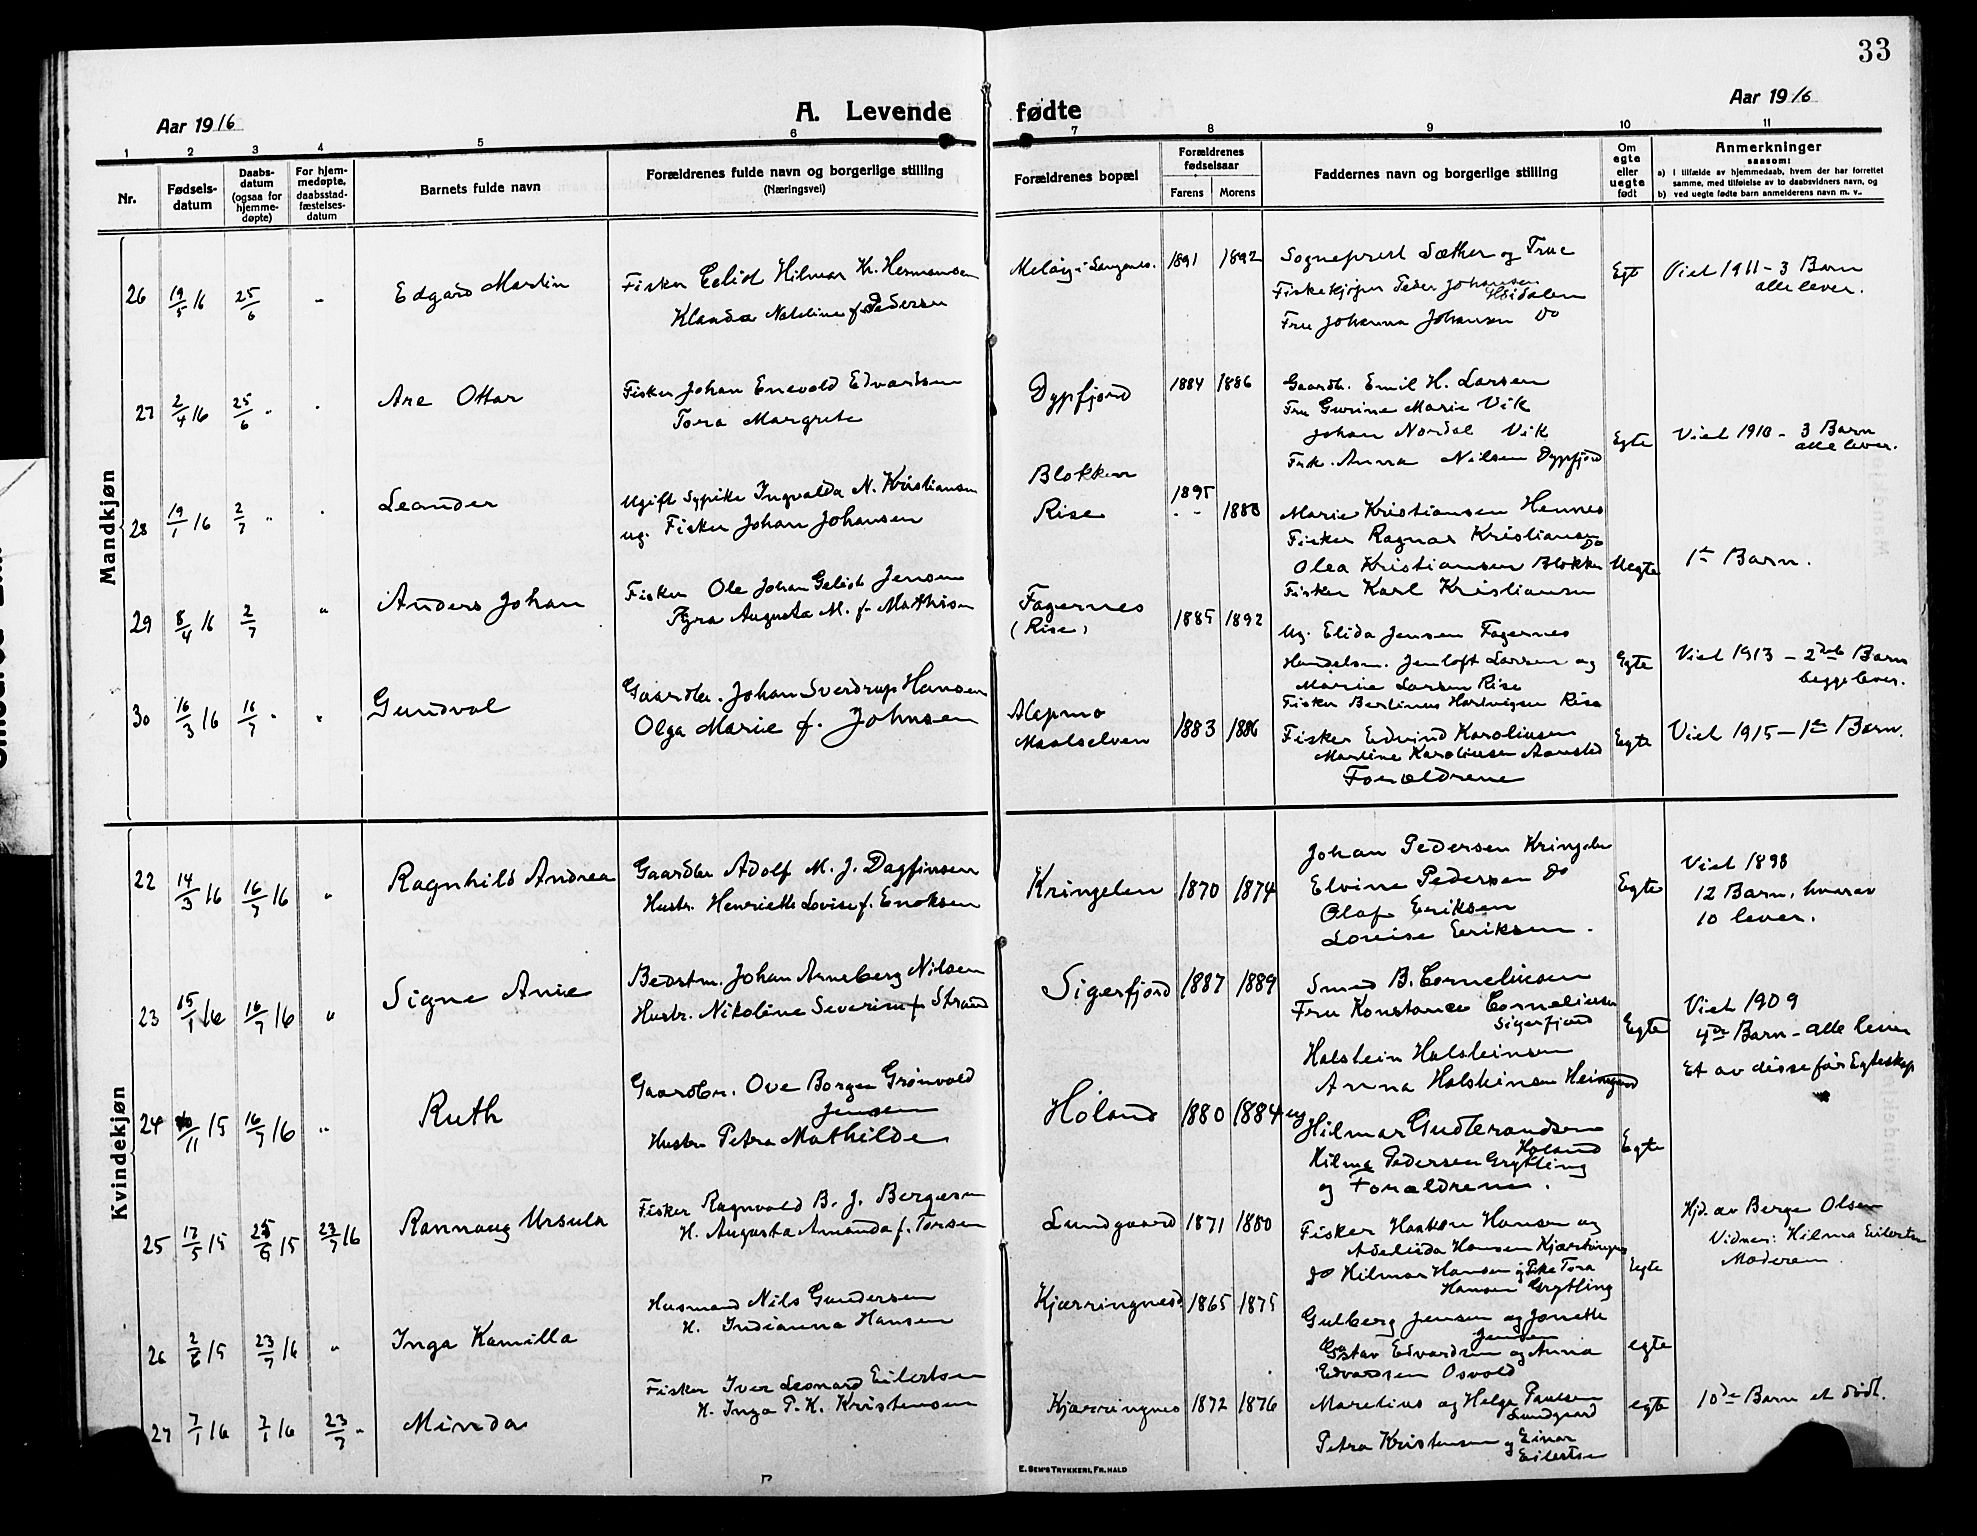 33
Aar 1916
A. Levende fødte
Aar 1916
1 2 3 4 5 6 7 8 9 10 11
Nr.
Fødsels-
datum
Daabs-
datum
(ogsaa for
hjemme-
døpte)
For hjem-
medøpte,
daabsstad-
fæstelses-
datum
Barnets fulde navn
Forældrenes fulde navn og borgerlige stilling
(Næringsvei)
Forældrenes bopæl
Forældrenes
fødselsaar
Farens Morens
Faddernes navn og borgerlige stilling
Om
egte
eller
uegte
født
Anmerkninger
saasom:
a) i tilfælde av hjemmedaab, hvem der har forrettet
samme, med tilføielse av to daabsvidners navn, og
b) ved uegte fødte barn anmelderens navn m. v..
Mandkjøn
26 19/5 16 25/6 - Edgard Martin
Fisker Hilmar Kr. Hermansen
Nateline f. Pedersen
1891 1892
Sogneprest Sæther og Frue
Fiskekjøper Peder Johansen
Fru Johanna Johansen Do
Egt
Viet 1911 - 3 Barn
alle lever.
27 2/4 16 25/6 " Are Ottar
Fisker Johan Enevold Edvardsen
Tora Margrete
Dypfjord
1884 1886
Gaardb. Emil H. Larsen
Fru Gurine Marie Vik
Johan Nordal Vik
Frk. Anna Nilsen Dypfjord
Egte
Viet 1910 - 3 Barn
alle lever.
28 19/1 16 2/7 " Leander
Ugift Sypike Ingvalda N. Kristiansen
ug. Fisker Johan Johansen
Blokken
Rise
1895
1888
Marie Kristiansen Hennes
Fisker Ragnar Kristiansen
Do
Olea Kristiansen Blokken
Fisker Karl Kristiansen
Uegte
1te Barn.
29 8/4 16 2/7 " Anders Johan
Fisker Ole Johan Jensen
Augusta M. f. Mathisen
Fagernes
(Rise)
1885 1892
Ug. Elida Jensen Fagernes
Handelsm. Jenloft Larsen og
Marie Larsen Rise
Fisker Bertinus Hartvigsen Rise
Egte
Viet 1913 - 2det Barn
begge lever.
30 16/3 16 16/7 " Gundval
Gaardbr. Johan Sverdrup Hansen
Olga Marie f. Johnsen
Alapmo
Maalselven
1883 1886
Fisker Edvind Karoliusen
Martine Karoliusen Aarsted
Forældrene
Egte
Viet 1915 - 1te Barn.
Kvindekjøn
22 14/3 16 16/7 16 " Ragnhild Andrea
Gaardbr Adolf M. J. Dagfinsen
Hustr. Henriette Lovise f. Enoksen
Kringelen
1870 1874
Johan Pedersen Kringelen
Elvine Pedersen do
Olaf Eriksen
Lovise Eriksen.
Egte
Viet 1898
12 Barn, hvorav
10 lever.
23 15/1 16 16/7 16 " Signe Anie
Bedstm. Johan Arneberg Nilsen
Hustr. Nikoline Severine f. Strand
Sigerfjord
1887 1889
Smed B. Corneliusen
Fru Konstance Corneliusen
Sigerfjord
Holstein Holsteinsen
Anna Holsteinsen
Egte
Viet 1909
4de Barn - alle lever
Et av disse før Egteskap
24 /11 15 16/7 16 " Ruth
Gaardbr. Ove Borgen Grønvold
Jensen
Hustr Petra Mathilde
Holand
1880 1884
Hilmar Gudbrandsen
Holand
Hilma Pedersen Grytting
og Forældrene.
Egte
25 17/5 15 25/6 15 23/7 16 Rannaug Ursula
Fisker Ragnvald B. J. Bergersen
H. Augusta Amanda f. Torsen
Lundgaard
1871 1880
Fisker Haakon Hansen og
Adeleida Hansen Kjærringnes
do Hilmar Hansen og Pike Tora
Hansen Grytting
Egte
Hjd. av Berge Olsen
Vidner: Hilma Eilertsen
Moderen.
26 2/8 15 23/7 16 " Inga Kamilla
Husmand Nils Gundersen
H. Indianna Hansen
Kjærringnes
1865 1875
Gulberg Jensen og Jonette
Jensen
Gustav Edvardsen og Anna
Edvardsen Osvold
egte
27 7/1 16 7/1 16 23/7 " Minda
Fisker Iver Leonard Eilertsen
H. Inga P. K. Kristensen
Kjærringnes
1872 1876
Maretius og Helga Paulsen
Lundgaard
Petra Kristensen og Einar
Eilertsen
egte
10de Barn et dødt.
E. SEM'S TRYKKERI, FR. HALD